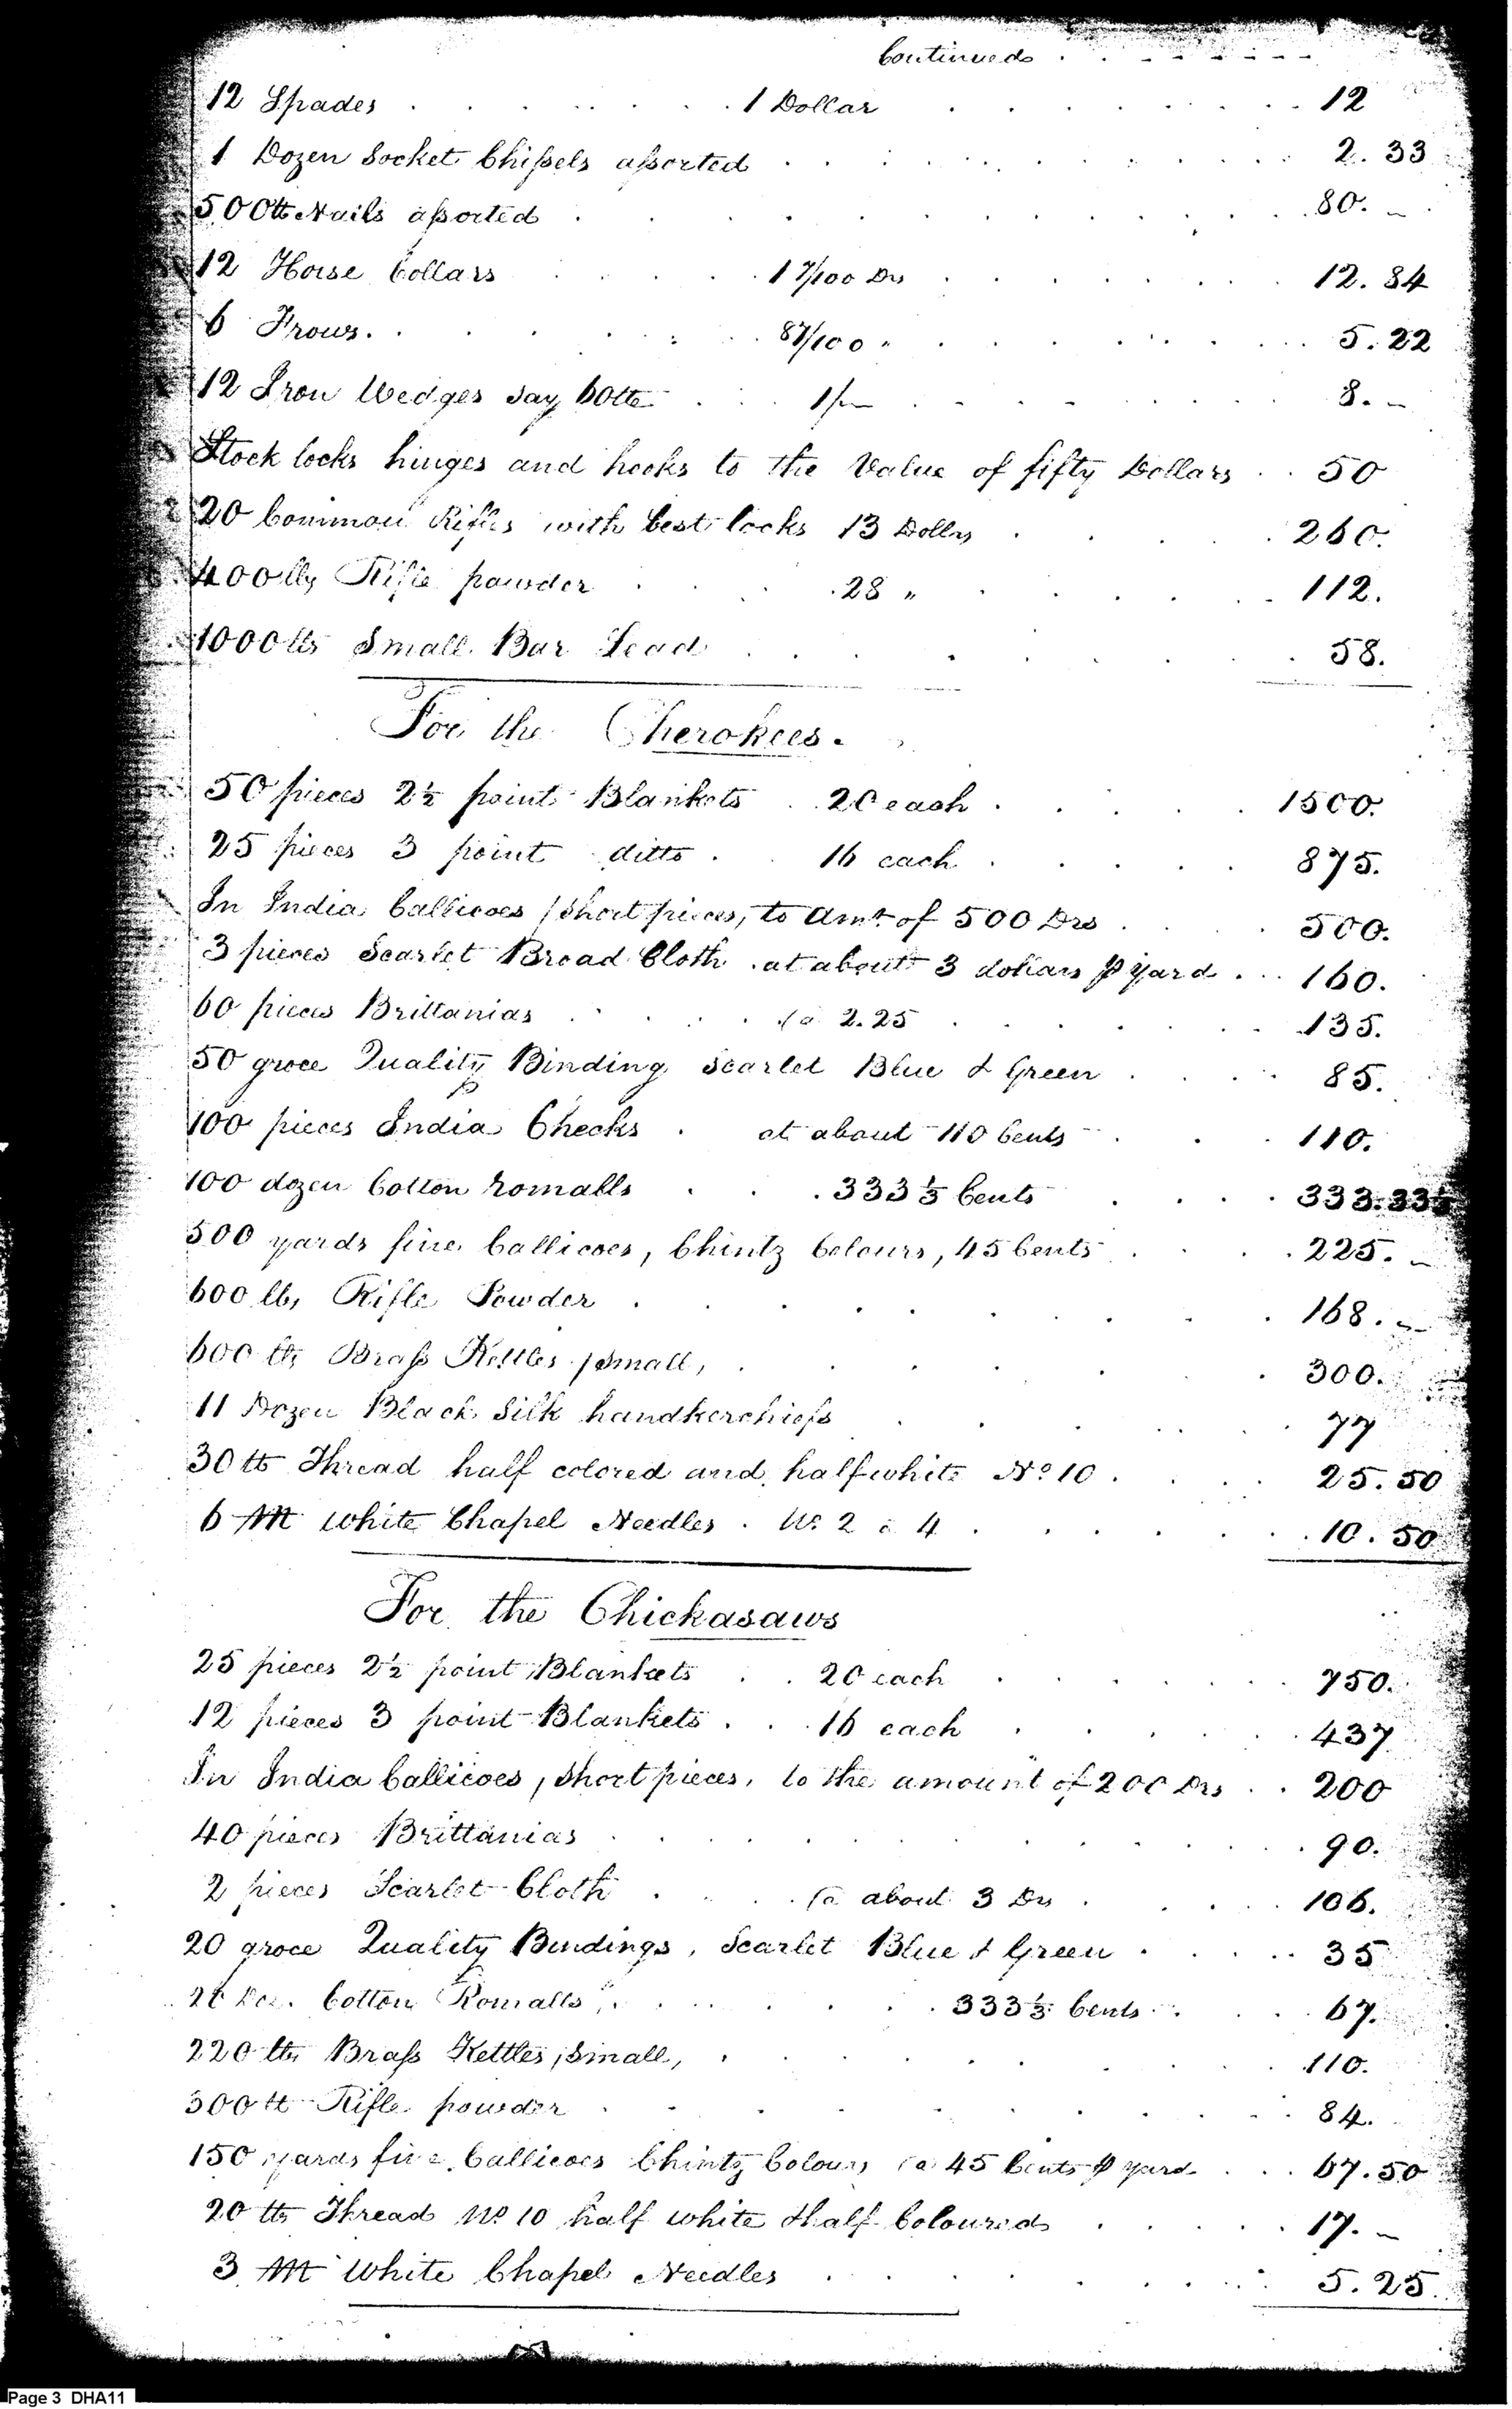 Continued . . - - - - - -
12 Spades . . . . . . . 1 Dollar . . . . . . . 12
1 Dozen Socket Chissels assorted . . . . . . . 2. 33
500 lb Nails assorted . . . . . . . 80. -
12 Horse Collars . . . . 1 7/100 Drs . . . . . . 12. 84
6 Frows. . . . . . 87/100 " . . . . . . 5. 22
12 Iron Wedges say 60 lb . . . 1/- . . . . . . 8. -
Stock locks hinges and hooks to the Value of fifty Dollars . . 50
20 Common Rifles with best locks 13 Dollrs . . . . 260.
400 lbs Rifle powder . . . . 28 " . . . . . 112.
1000 lbs Small Bar Lead . . . . . . 58.
For the Cherokees.
50 pieces 2½ point Blankets . . 20 each . . . . 1500.
25 pieces 3 point ditto . . 16 each . . . . 875.
In India Callicoes / short pieces, to amt. of 500 Drs . . . 500.
3 pieces Scarlet Broad Cloth . at about 3 dollars ⅌ Yard . . . 160.
60 pieces Brittanias . . . . @ 2.25 . . . . . 135.
50 groce Quality Binding Scarlet Blue & Green . . . . 85.
100 pieces India Checks . at about 110 Cents . . . 110.
100 dozen Cotton Romalls . . . 333⅓ Cents . . . . 333.33⅓
500 yards fine Callicoes, Chintz Colours, 45 Cents . . . . 225. -
600 lbs Rifle Powder . . . . . . . 168. -
600 lbs Brass Kettles / small, . . . . . . 300.
11 Dozen Black Silk handkerchiefs . . . . . 77
30 lb Thread half colored and half white No 10 . . . . 25. 50
6 M White Chapel Needles . No. 2 a 4 . . . . . . 10. 50
For the Chickasaws
25 pieces 2½ point Blankets . . 20 each . . . . . 750.
12 pieces 3 point Blankets . . . 16 each . . . . . 437
In India Callicoes, short pieces, to the amount of 200 Drs . . 200
40 pieces Brittanias . . . . . . . 90.
2 pieces Scarlet Cloth . . . . @ about 3 Drs . . . . 106.
20 groce Quality Bindings, Scarlet Blue & Green . . . . . 35
Doz. Cotton Romalls, . . . . . . . 333⅓ Cents . . . . 67.
220 lbs Brass Kettles, small, . . . . . . 110.
300 lb Rifle powder . . . . . . . 84.
150 yards fine Callicoes Chintz Colours @ 45 Cents ⅌ yard . . . 67.50
20 lbs Thread No 10 half white & half Coloured . . . . . 17. -
3 M White Chapel Needles . . . . . . 5. 25
Page 3 DHA11